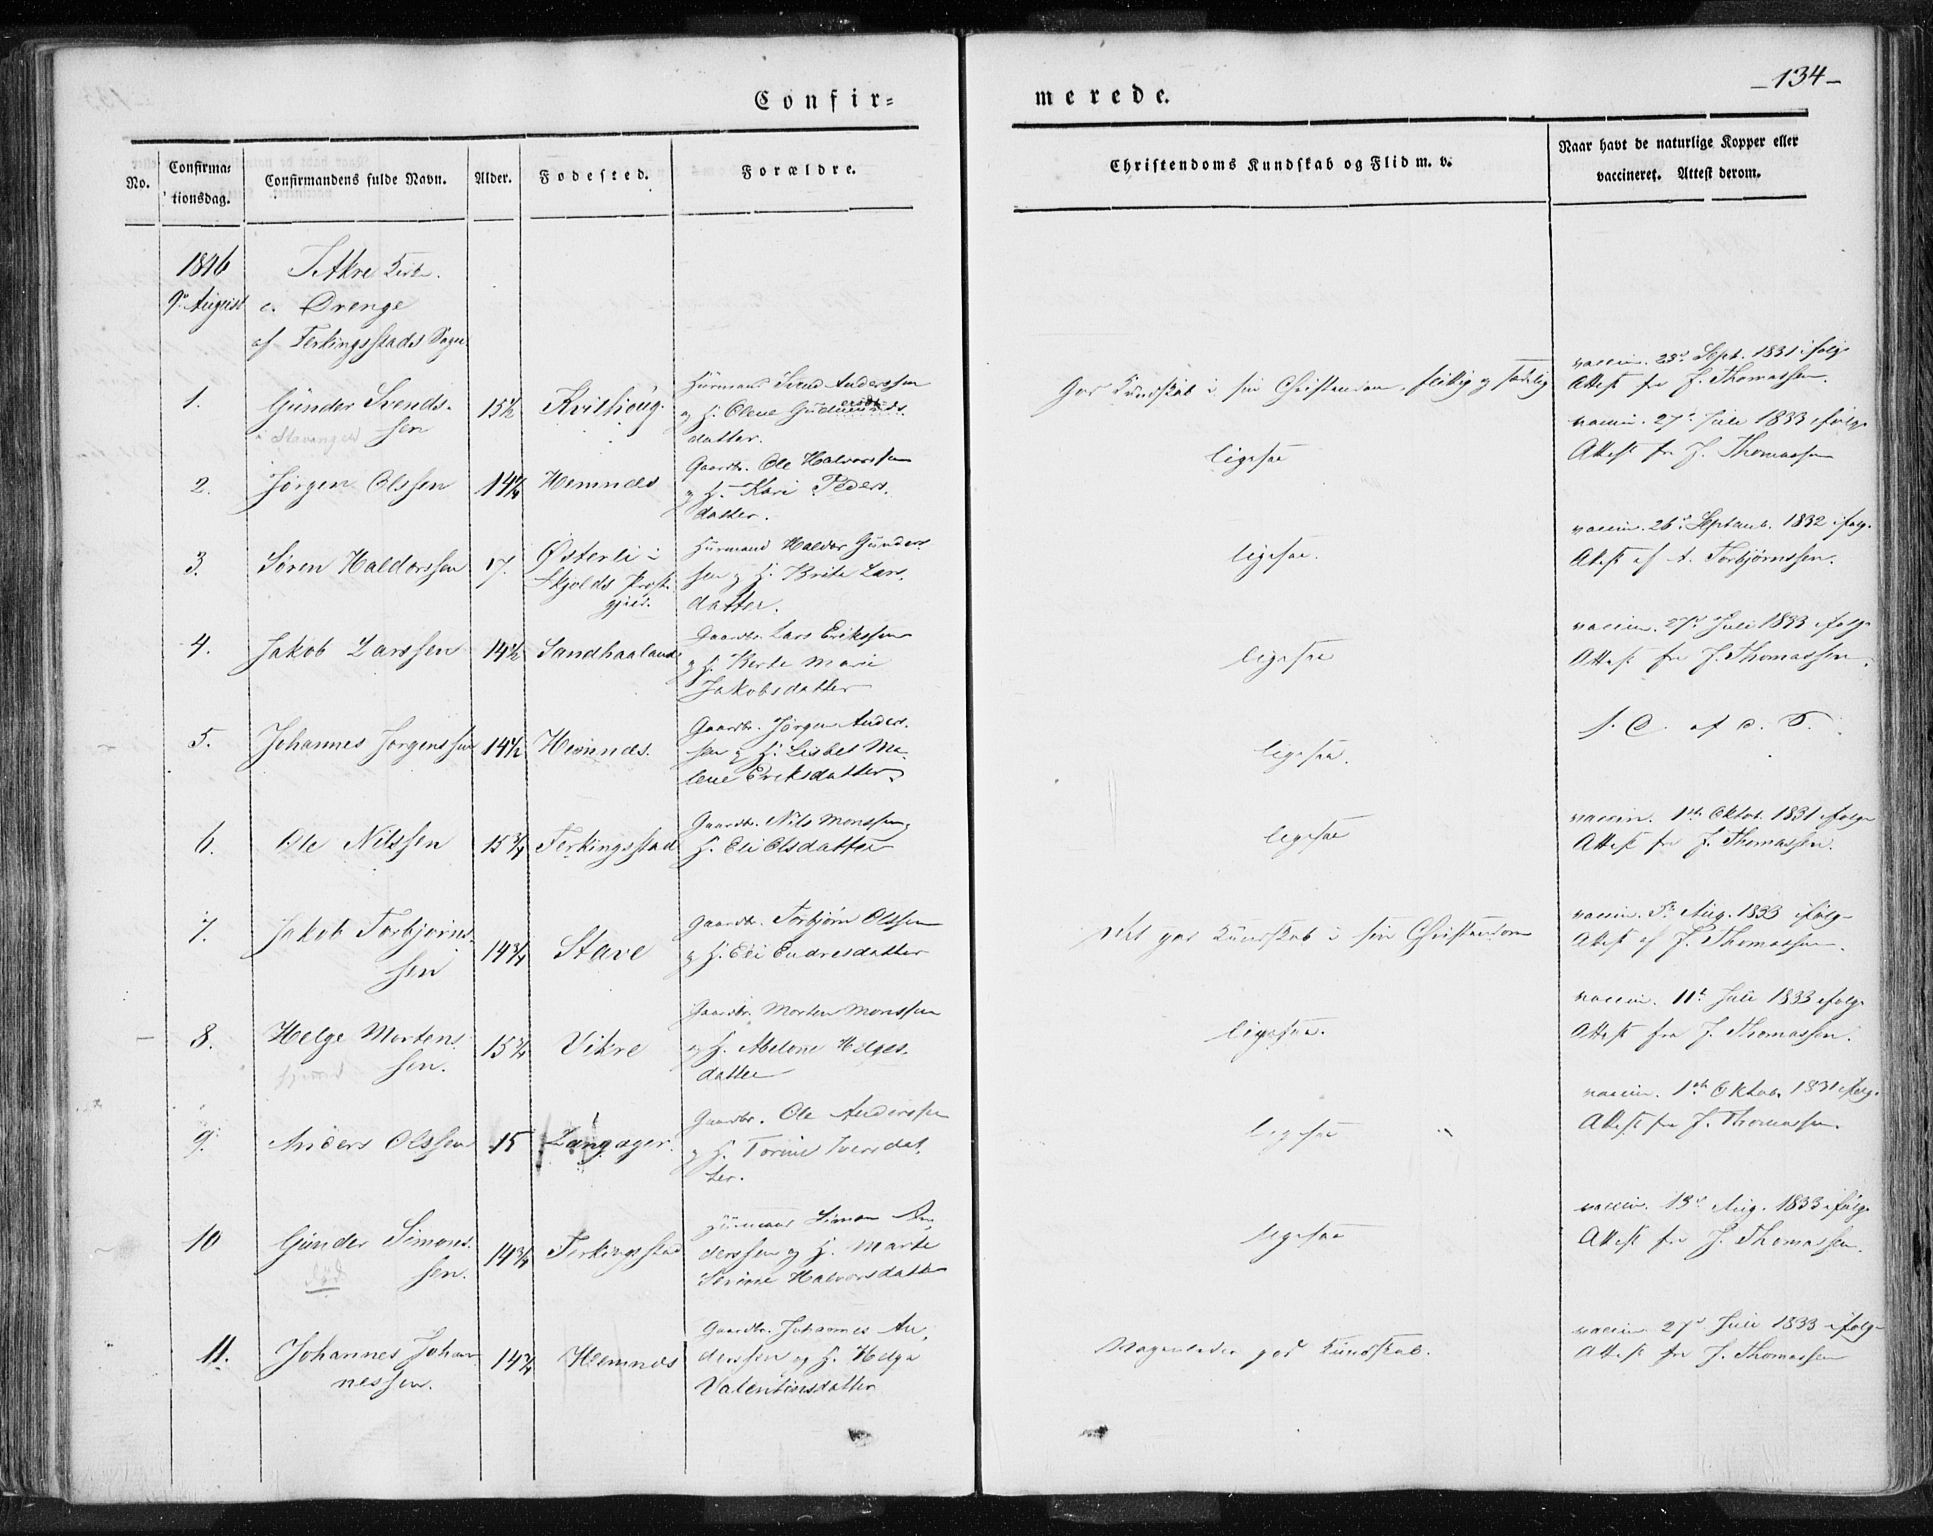 -134-
Confir=
merede.
No.
Confirma=
tionsdag.
Confirmandens fulde Navn.
Alder.
Fødested.
Forældre.
Christendoms Kundskab og Flid m. v.
Naar havt de naturlige Kopper eller
vaccineret. Attest derom.
1846
9de August
I Akre Kirke.
a. Drenge
af Ferkingsstads Sogn
1.
Gunder Svends-
sen
i Stavanger
15½
Kvilhoug.
Huusmand Svend Anderssen
og H. Olene Gudmunds-
datter.
God Kundskab i sin Christendom, flittig og sædelig
vaccin. 23de Sept. 1831 ifølge
Attest fra J. Thomassen.
2.
Jørgen Olssen
14½
Hemnæs
Gaardbr. Ole Halvorssen
og H. Kari Peders-
datter.
ligesaa
vaccin. 27de Juli 1833 ifølge
Attest fra J. Thomassen
3.
Søren Haldorssen
17.
Østerli i
Skjolds Præste-
gjeld.
Huusmand Haldor Gunders-
sen og H. Brita Lars-
datter.
ligesaa.
vaccin. 26de Septemb. 1832 ifølge
Attest af A. Torbjørnssen.
4.
Jakob Larssen
14½
Sandhaaland
Gaardbr. Lars Erikssen
og H. Berte Marie
Jakobsdatter
ligesaa
vaccin. 27de Juli 1833 ifølge
Attest fra J. Thomassen.
5.
Johannes Jørgenssen
14½
Hemnæs.
Gaardbr. Jørgen Anders-
sen og H. Lisbet Ma-
lene Eriksdatter
ligesaa.
6.
Ole Nilssen
15¾
Ferkingsstad
Gaardbr. Nils Monssen og
H. Eli Olsdatter
ligesaa
vaccin. 1ste Oktob. 1831 ifølge
Attest fra J. Thomassen.
7.
Jakob Torbjørns-
sen
14¾
Stave
Gaardbr. Torbjørn Olssen
og H. Eli Endresdatter
god Kundskab i sin Christendom
vaccin. Aug. 1833 ifølge
Attest af J. Thomassen.
8.
Helge Mortens
sen.
15¾
Vikre
Gaardbr. Morten Monssen
og H. Abelone Helges-
datter
ligesaa.
vaccin. 11te Juli 1833 ifølge
Attest fra J. Thomassen.
9.
Anders Olssen
15
Langager.
Gaardbr. Ole Anderssen
og H. Torine Iversdat-
ter.
ligesaa
vaccin. 1ste Oktob. 1831 ifølge
Attest fra J. Thomassen.
10
Gunder Simons-
sen.
død
14¾
Ferkingsstad
Huusmand Simon An-
derssen og H. Marte
Serine Halvorsdatter
ligesaa
vaccin. 13de Aug. 1833 ifølge
Attest fra J. Thomassen.
11.
Johannes Johan-
nessen.
14¾
Hemnæs
Gaardbr. Johannes An-
derssen og H. Helga
Valentinsdatter
Nogenledes god Kundskab.
vaccin. 27de Juli 1833 ifølge
Attest fra J. Thomassen